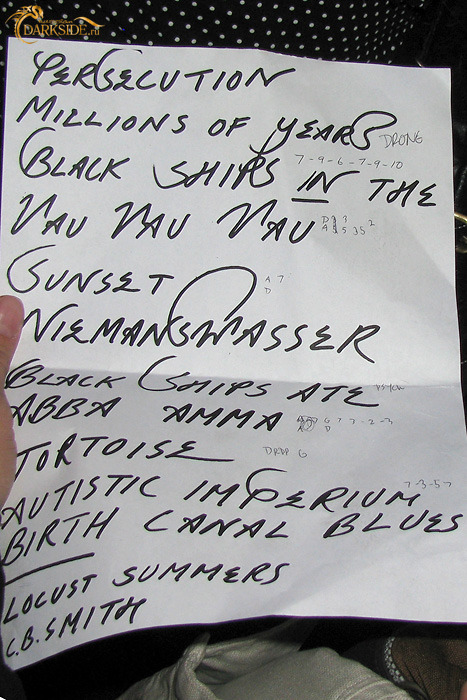 DARKSIDE.ru
PERSECUTION
MILLIONS OF YEARS DRONG
BLACK SHIPS IN THE 7-9-6-7-9-10
NAU NAU NAU
SUNSET A 7
D
NIEMANSWASSER
BLACK SHIPS ATE
ABBA AMMA G 7 7-2-3
TORTOISE DROP G
AUTISTIC IMPERIUM 7-3-57
BIRTH CANAL BLUES
LOCUST SUMMERS
C.B. SMITH